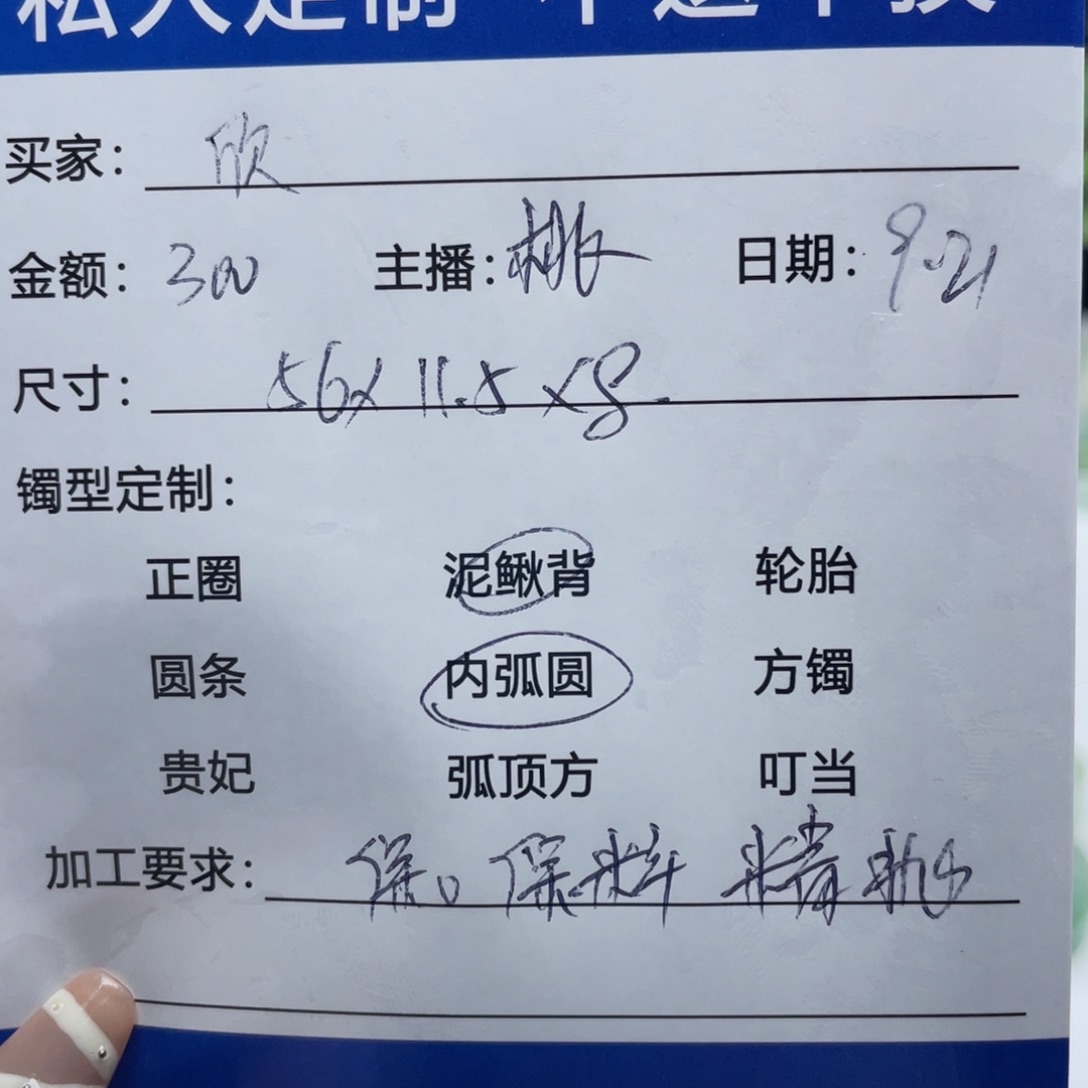 私人定制 不退不换
买家：欣
金额：300 主播：桃 日期：9.21
尺寸：56x11.5x8
镯型定制：
正圈 泥鳅背 轮胎
圆条 内弧圆 方镯
贵妃 弧顶方 叮当
加工要求：保口 保料 精抛